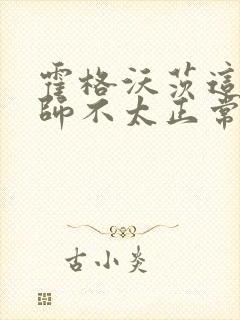 霍格沃茨這
師不太正常
古小炎